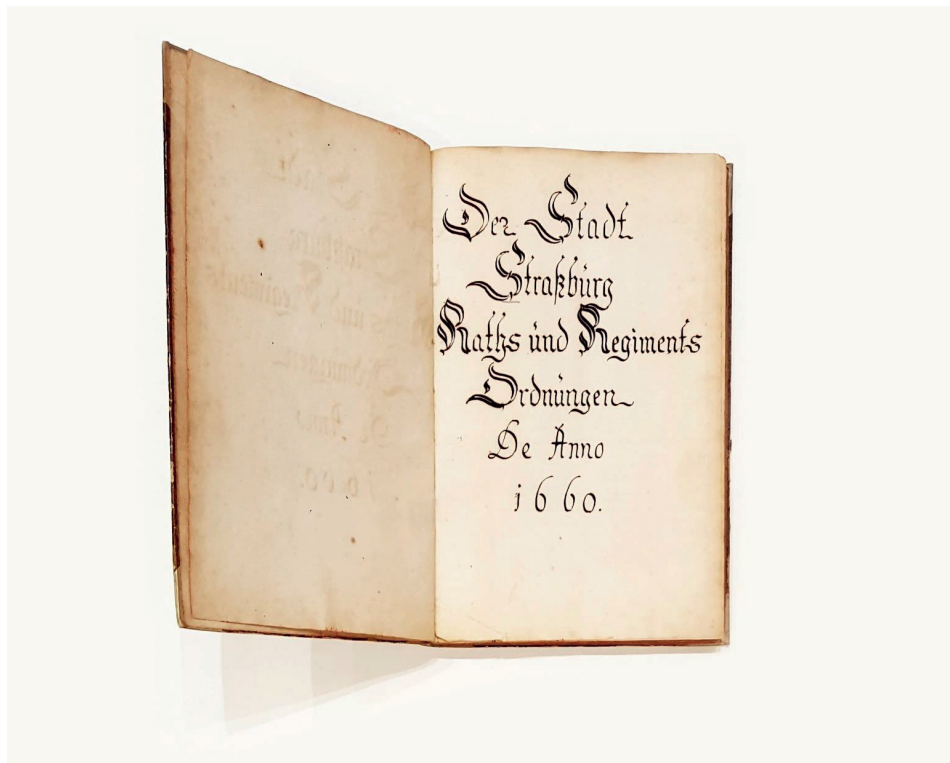 Der Stadt
Straßbürg
Raths ünd Regiments
Ordnüngen
De Anno
1660.